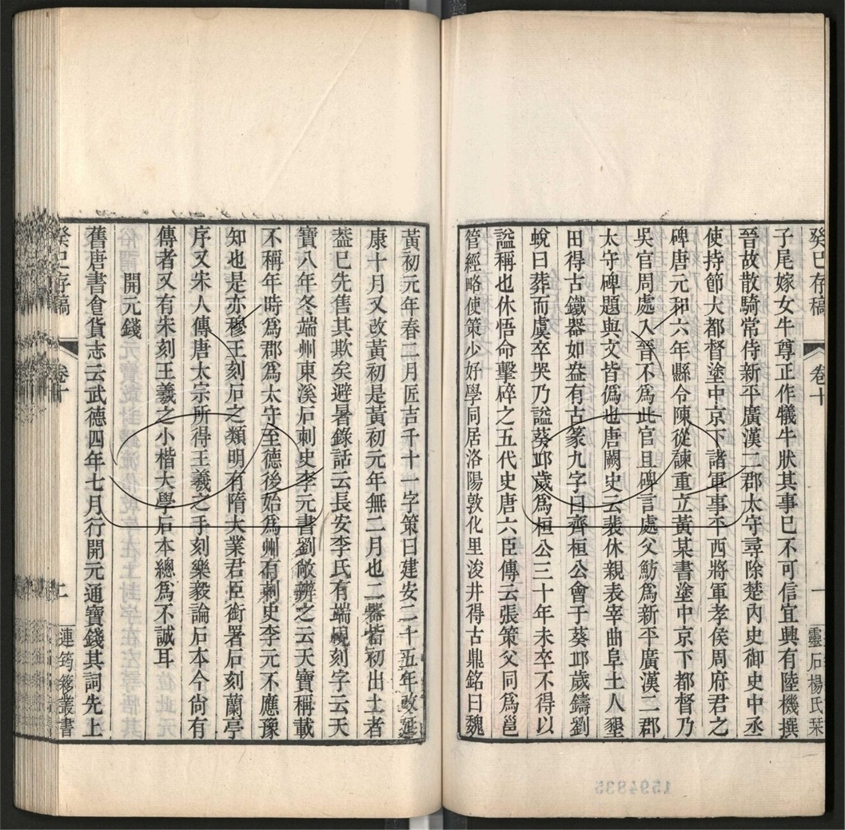 癸巳存稿 卷十 一 靈石楊氏栞
子尾嫁女牛尊正作犧牛狀其事已不可信宜興有陸機撰
晉故散騎常侍新平廣漢二郡太守尋除楚內史御史中丞
使持節大都督塗中京下諸軍事平西將軍孝侯周府君之
碑唐元和六年縣令陳從諫重立黃某書塗中京下都督乃
吳官周處入晉不為此官且碑言處父魴為新平廣漢二郡
太守碑題與文皆偽也唐闕史云裴休親表宰曲阜土人墾
田得古鐵器如盎有古篆九字曰齊桓公會于葵邱歲鑄劉
蛻曰葬而虞卒哭乃謚葵邱歲為桓公三十年未卒不得以
謚稱也休悟命擊碎之五代史唐六臣傳云張策父同為邕
管經略使策少好學同居洛陽敦化里浚井得古鼎銘曰魏
黃初元年春二月匠吉千十一字策曰建安二十五年改延
康十月又改黃初是黃初元年無二月也二器皆初出土者
葢已先售其欺矣避暑錄話云長安李氏有端硯刻字云天
寶八年冬端州東溪石刺史李元書劉敞辨之云天寶稱載
不稱年時為郡為太守至德後始為州有刺史李元不應豫
知也是亦穆王刻石之類明有隋大業君臣銜署石刻蘭亭
序又宋人傳唐太宗所得王羲之手刻樂毅論石本今尚有
傳者又有朱刻王羲之小楷大學石本總為不誠耳
開元錢
舊唐書食貨志云武德四年七月行開元通寶錢其詞先上
癸巳存稿 卷十 二 連筠簃叢書
1594935